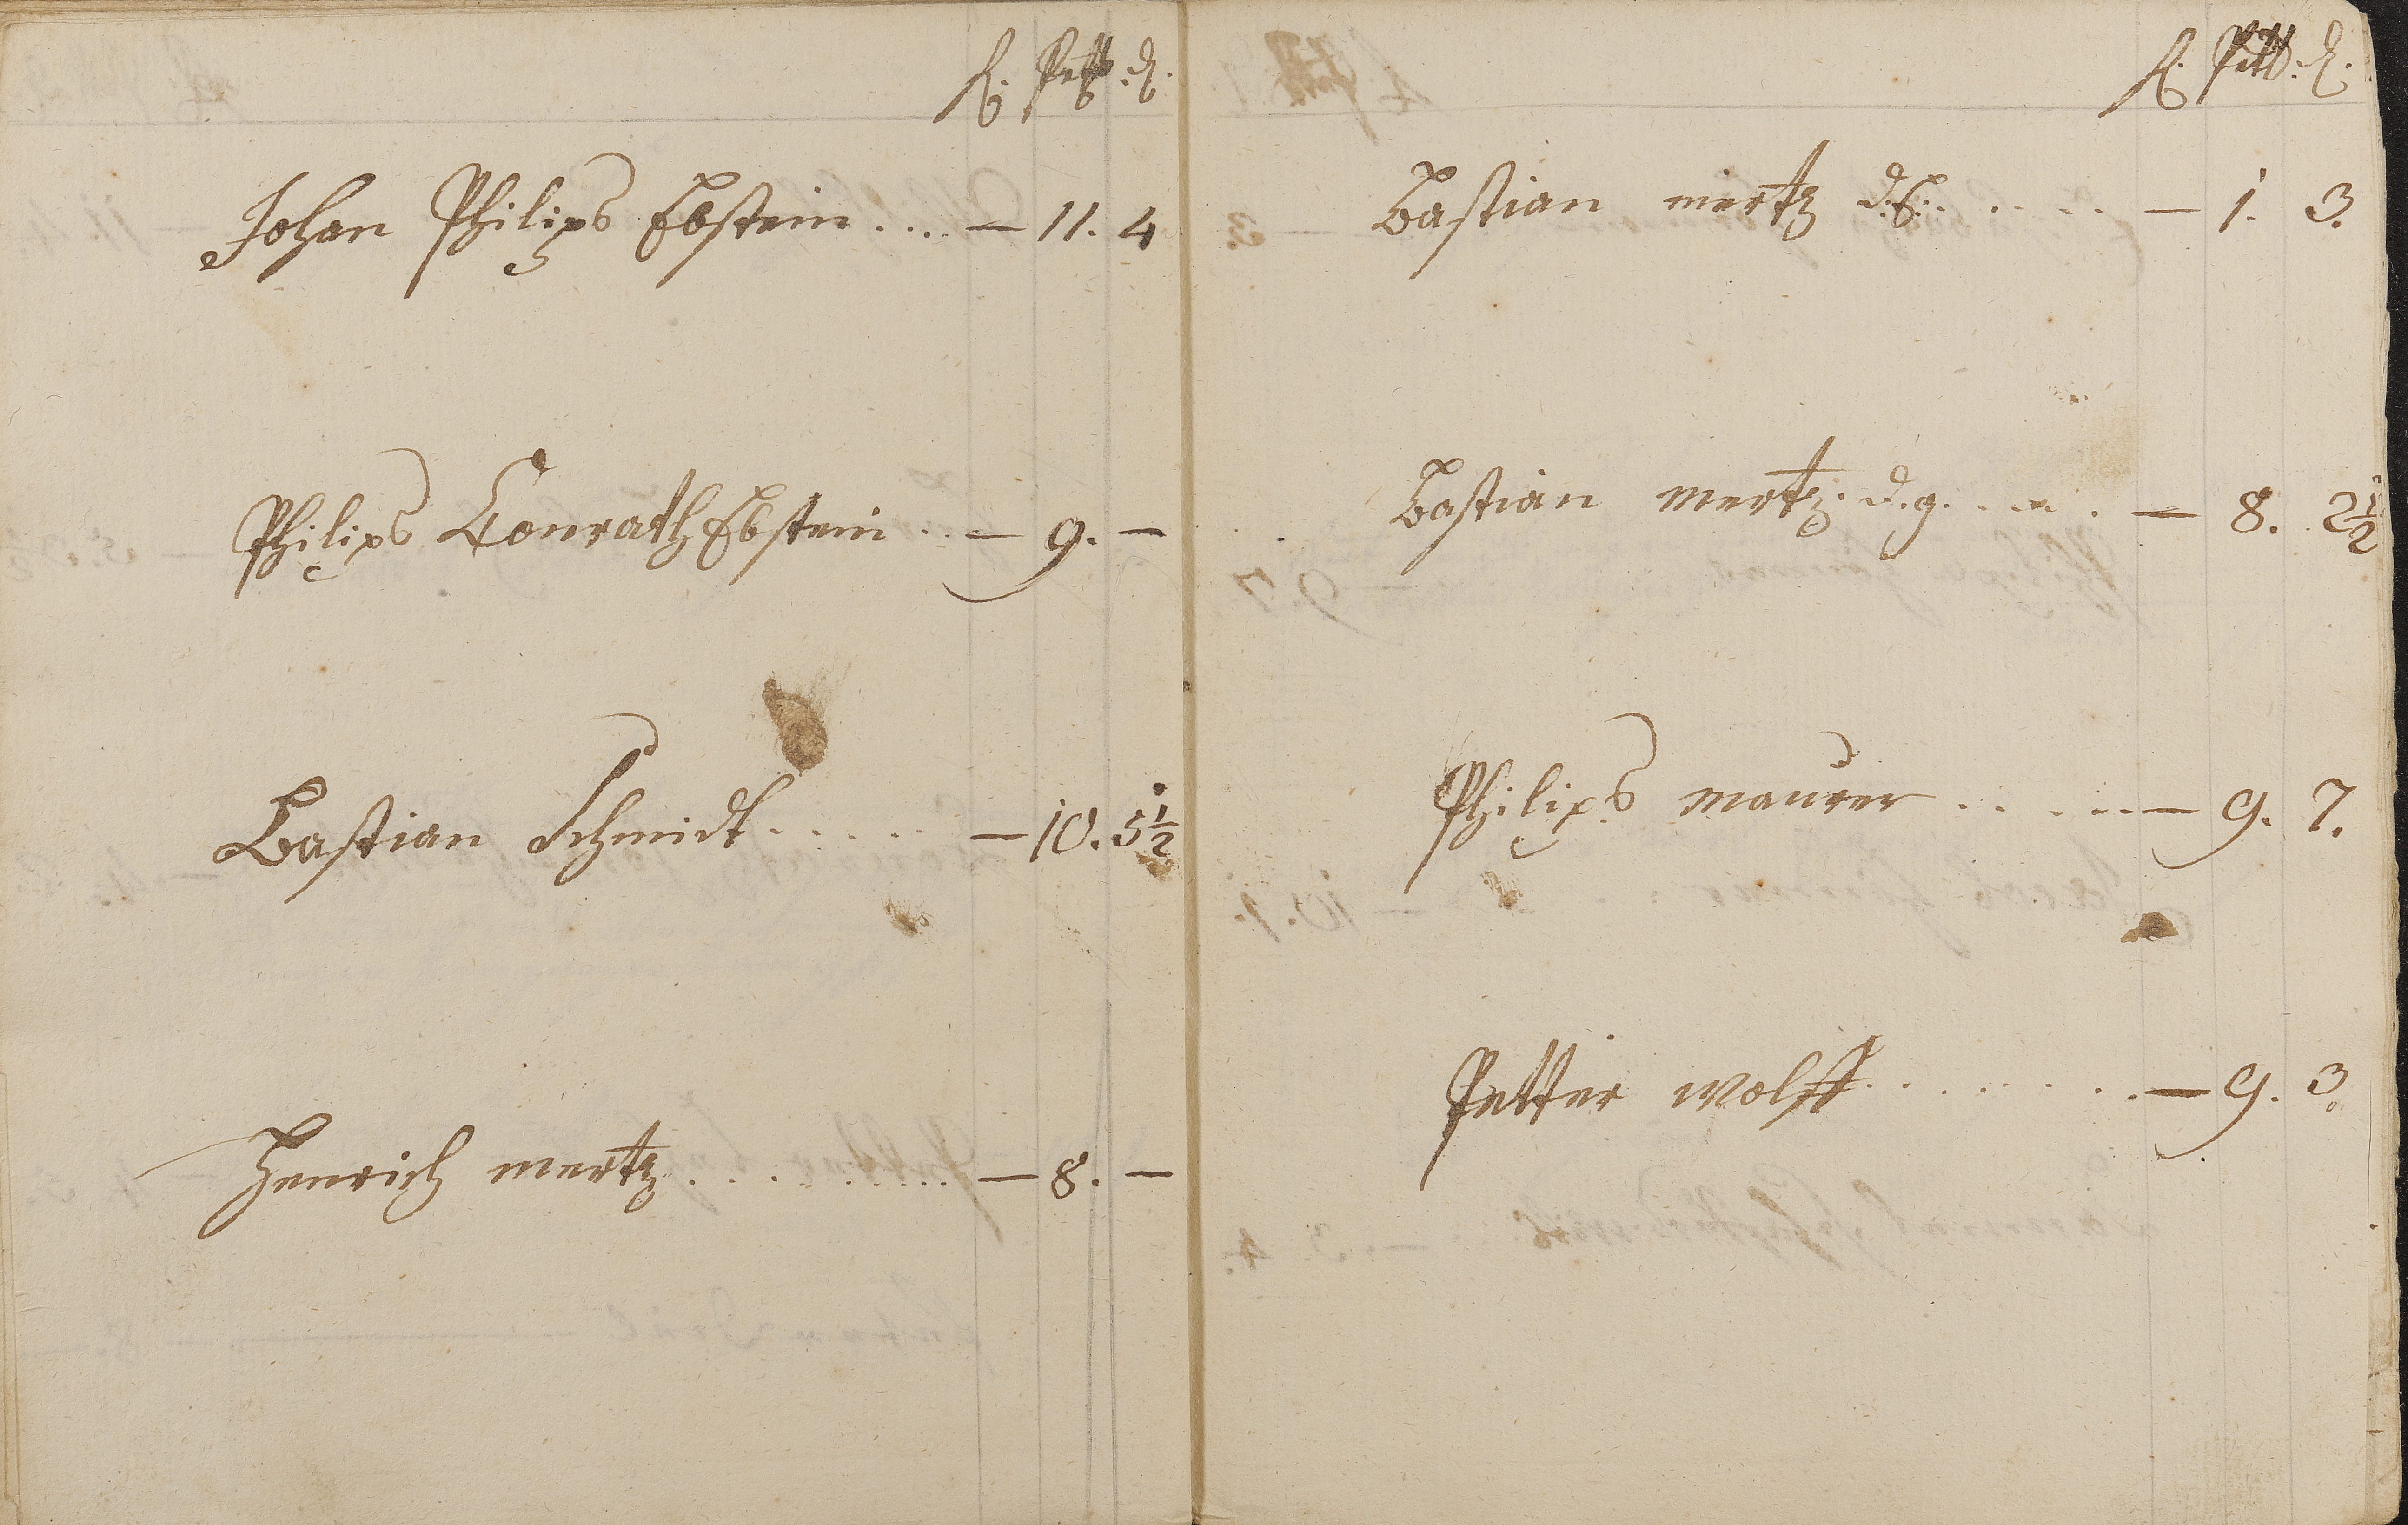 fl. Pett. d.
Johan Philips Ebstein .... — 11. 4
Philips Conrath Ebstein .. — 9. —
Bastian Schmidt ...... — 10. 5½
Henrich mertz .......... — 8. —
fl. Pett. d.
Bastian mertz d. E. ..... — 1. 3.
Bastian mertz. d. g. .... — 8. 2½
Philips maurer ..... — 9. 7.
Petter wolff ........ — 9. 3